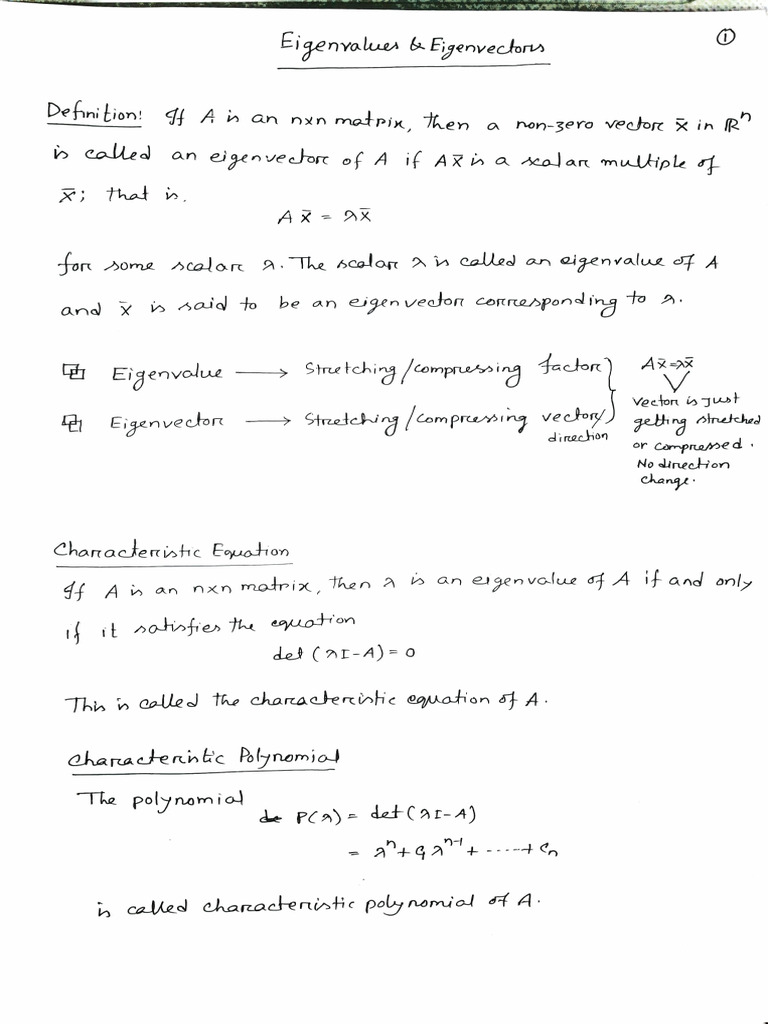 ①
Eigenvalues & Eigenvectors
Definition: If A is an nxn matrix, then a non-zero vector x̄ in ℝⁿ
is called an eigenvector of A if Ax̄ is a scalar multiple of
x̄; that is.
A x̄ = λx̄
for some scalar λ. The scalar λ is called an eigenvalue of A
and x̄ is said to be an eigenvector corresponding to λ.
Eigenvalue ⟶ Stretching/compressing factor
Eigenvector ⟶ Stretching/compressing vector/
direction
Ax̄=λx̄
vector is just
getting stretched
or compressed.
No direction
change.
Characteristic Equation
If A is an nxn matrix, then λ is an eigenvalue of A if and only
if it satisfies the equation
det (λI-A) = 0
This is called the characteristic equation of A.
Characteristic Polynomial
The polynomial
P(λ) = det(λI-A)
= λⁿ + c₁λⁿ⁻¹ + ......+ cₙ
is called characteristic polynomial of A.